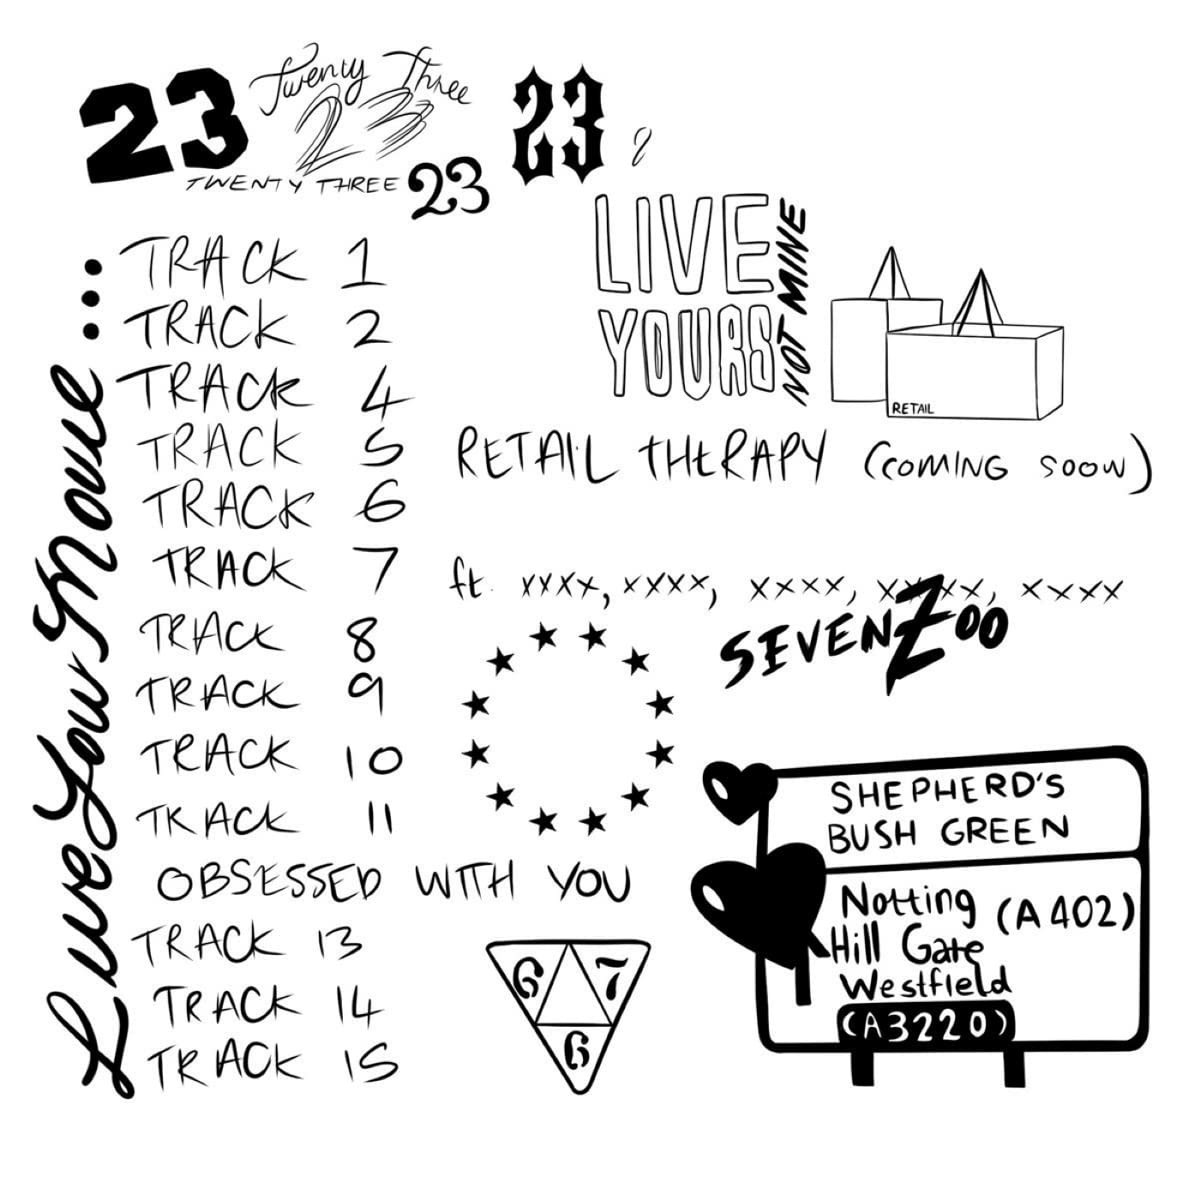 23
Twenty Three
23
TWENTY THREE
23
23
2
LIVE
YOURS
NOT MINE
RETAIL
Live Your Movie...
TRACK 1
TRACK 2
TRACK 4
TRACK 5
TRACK 6
TRACK 7
TRACK 8
TRACK 9
TRACK 10
TRACK 11
OBSESSED WITH YOU
TRACK 13
TRACK 14
TRACK 15
RETAIL THERAPY (COMING SOON)
ft. xxxx, xxxx, xxxx, xxxxx, xxxx
SEVENZOO
SHEPHERD'S
BUSH GREEN
Notting (A402)
Hill Gate
Westfield
(A3220)
6 7
6